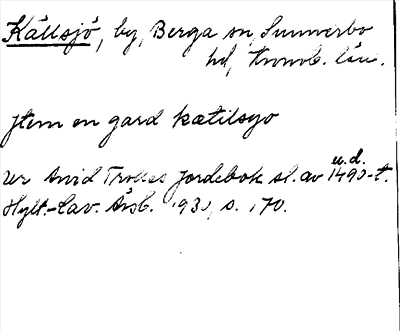 Källsjö, by, Berga sn, Sunnerbo
hd, Kronob. län.
jtem en gard kætilsyo
u.d.
ur Arvid Trolles jordebok sl. av 1490-t.
Hylt.-Cav. Årsb. 1930, s. 170.